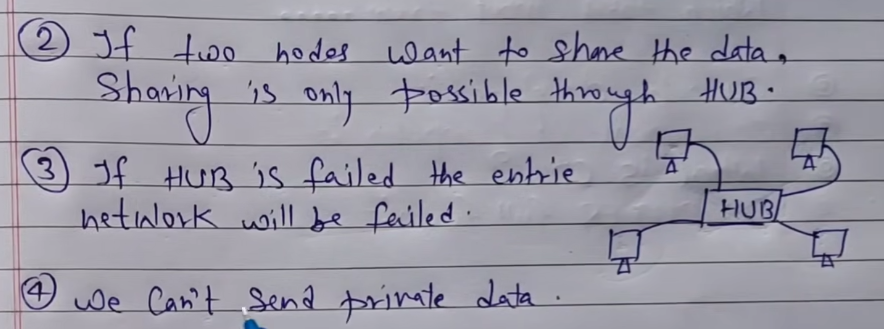 ② If two nodes want to share the data,
Sharing is only possible through HUB.
③ If HUB is failed the entrie
network will be failed.
HUB
④ We Can't Send private data.